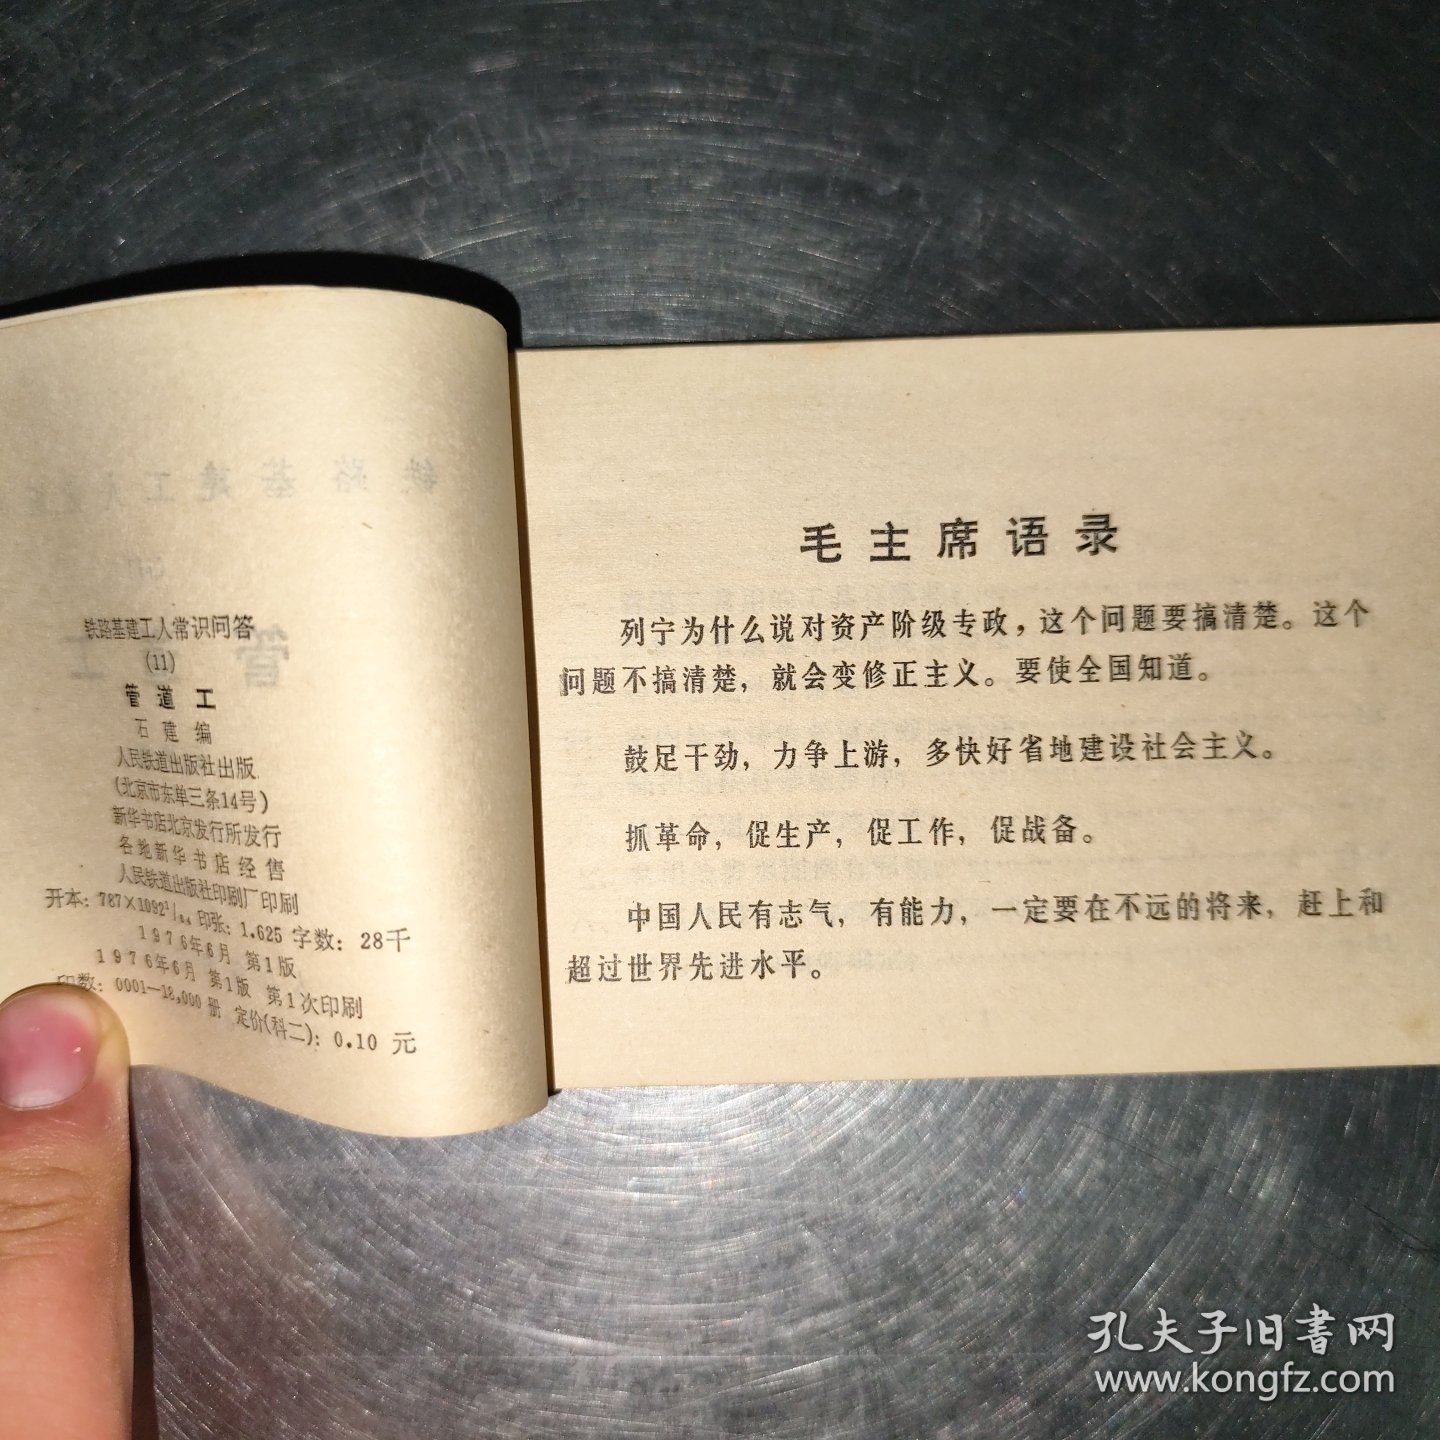 铁路基建工人常识问答
(11)
管道工
石建编
人民铁道出版社出版
(北京市东单三条14号)
新华书店北京发行所发行
各地新华书店经售
人民铁道出版社印刷厂印刷
开本：787×1092¹/₆₄ 印张：1.625 字数：28千
1976年6月 第1版
1976年6月 第1版 第1次印刷
印数：0001—18,000 册 定价(科二)：0.10 元
毛主席语录
列宁为什么说对资产阶级专政，这个问题要搞清楚。这个
问题不搞清楚，就会变修正主义。要使全国知道。
鼓足干劲，力争上游，多快好省地建设社会主义。
抓革命，促生产，促工作，促战备。
中国人民有志气，有能力，一定要在不远的将来，赶上和
超过世界先进水平。
孔夫子旧書网
www.kongfz.com